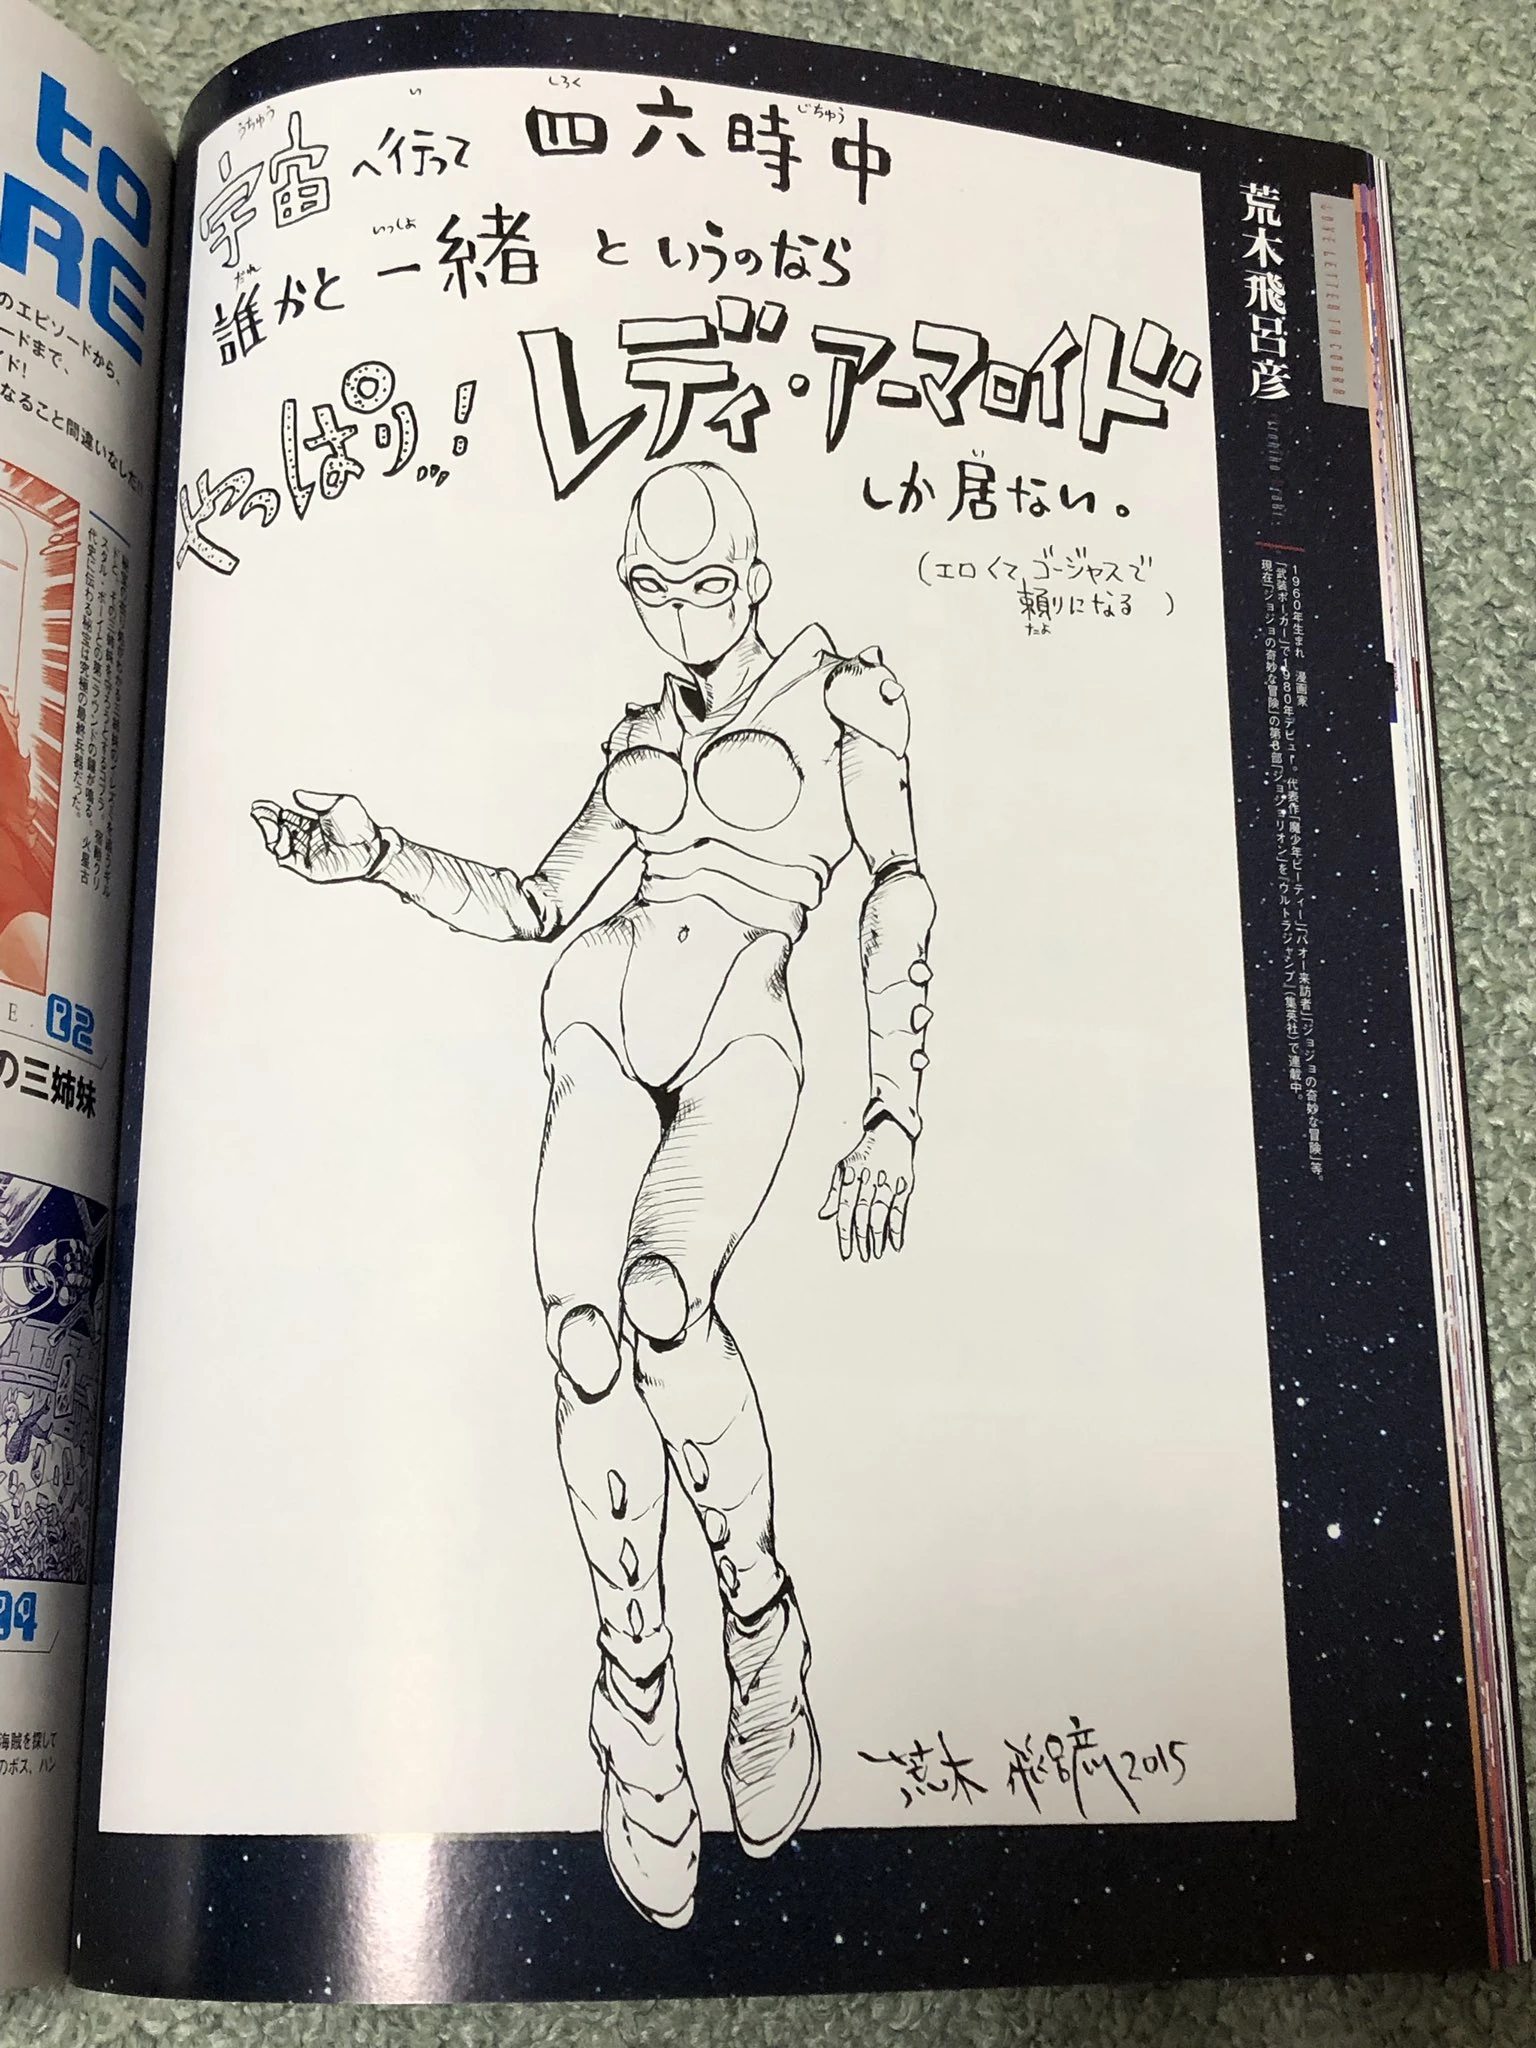 宇宙へ行って 四六時中
うちゅう い しろく じちゅう
誰かと 一緒 というのなら
だれ いっしょ
やっぱり…! レディ・アーマロイド
しか居ない。
い
(エロくて、ゴージャスで
頼りになる)
たよ
荒木 飛呂彦 2015
荒木飛呂彦
LOVE LETTER TO COBRA
1960年生まれ 漫画家
『武装ポーカー』で1980年デビュー。代表作『魔少年ビーティー』『バオー来訪者』『ジョジョの奇妙な冒険』等。
現在『ジョジョの奇妙な冒険』の第8部『ジョジョリオン』を『ウルトラジャンプ』(集英社)で連載中。
to
RE
のエピソードから、
ードまで、
イド!
なること間違いなしだ!!
E. 02
の三姉妹
04
海賊を探して
のボス、ハン